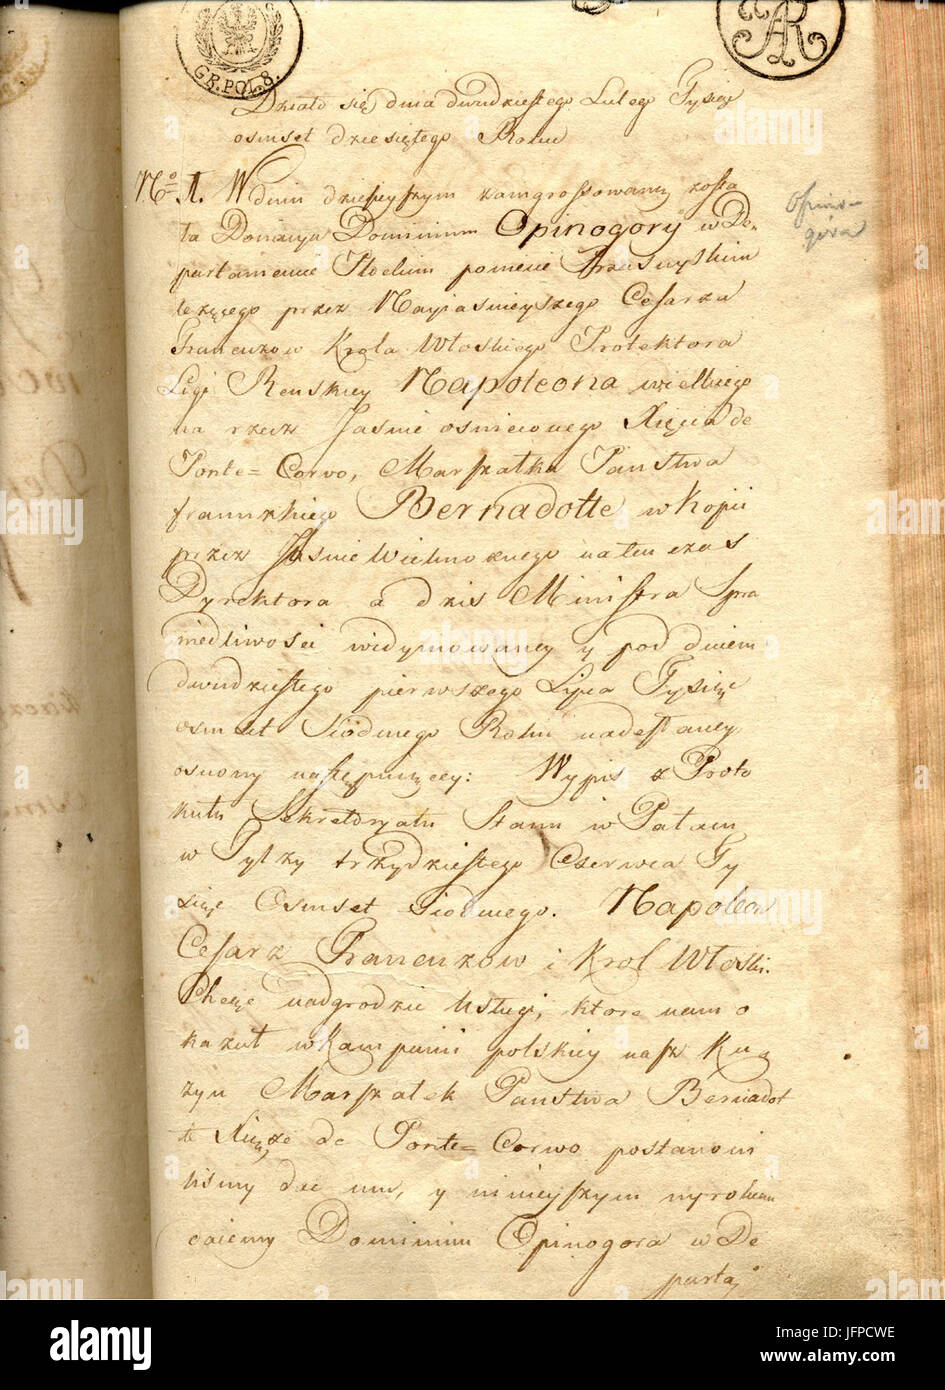 GR.POL.8.
AR
Działo się dnia dwudziestego Lutego Tysiąc
osmset dziesiątego Roku
No 1. W dniu dzisieyszym zaingrossowaną zosta
ła Donacya Dominium Opinogory w De-
Opino-
góra
partamencie Płockim powiecie Przasnyskim
leżącego przez Nayiaśnieyszego Cesarza
Francuzow Krola Włoskiego Protektora
Ligi Renskiey Napoleona wielkiego
na rzecz Jaśnie oświeconego Xięcia de
Ponte=Corvo, Marszałka Panstwa
francuzkiego Bernadotte w kopii
przez Jaśnie Wielmożnego na ten czas
Dyrektora a dzis Ministra Spra
wiedliwosci widymowaney y pod dniem
dwudziestego pierwszego Lipca Tysiąc
osmset Siodmego Roku nadesłaney
osnowy następuiącey: Wypis z Proto
kułu Sekretaryatu Stanu w Pałacu
w Tylży trzydziestego Czerwca Ty
siąc Osmset Siodmego. Napoleon
Cesarz Francuzow i Krol Włoski.
Chcąc nadgrodzic usługi, ktore nam o
kazał w kampanii polskiey nasz Ku
zyn Marszałek Panstwa Bernadot
te Xiąże de Ponte=Corvo postanowi
liśmy dac mu, y ninieyszym
daiemy Dominium Opinogora w De
parta
alamy
Image ID: JFPCWE
www.alamy.com